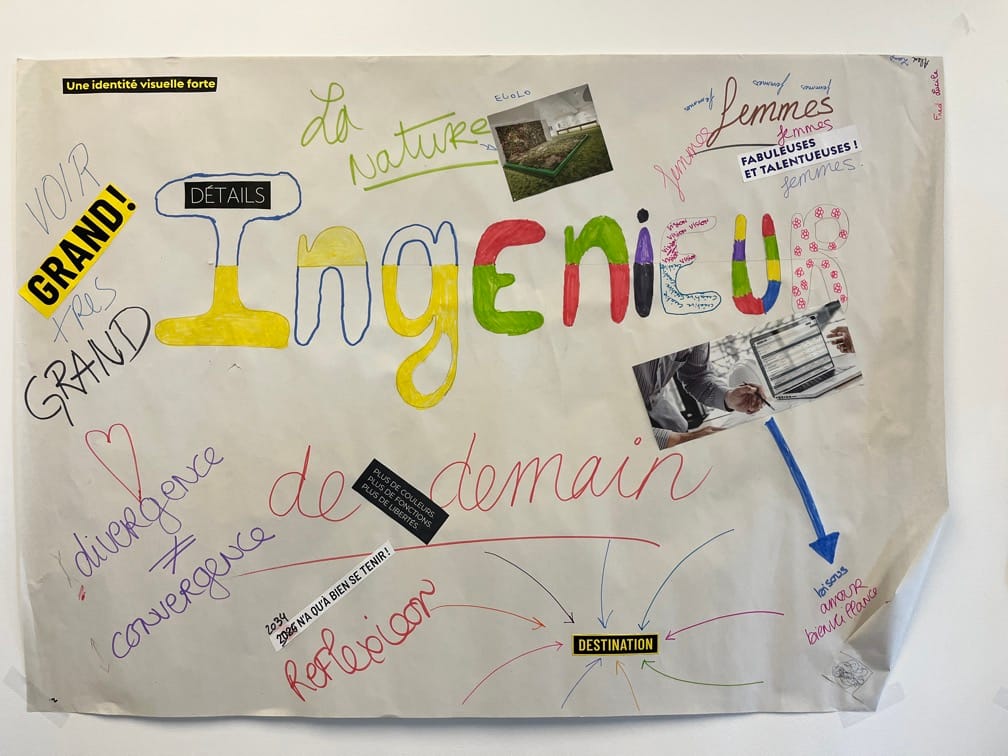 Une identité visuelle forte
La
Nature
ECOLO
femmes
femmes
femmes
femmes
femmes
femmes
femmes
FABULEUSES
ET TALENTUEUSES !
femmes.
Fred Lucile
VOIR
GRAND !
TRES
GRAND
DÉTAILS
IngEniEUR
de demain
PLUS DE COULEURS.
PLUS DE FONCTIONS.
PLUS DE LIBERTÉS.
divergence
≠
convergence
2034
2025 N'A QU'À BIEN SE TENIR !
Reflexion
DESTINATION
bisous
amour
bienveillance